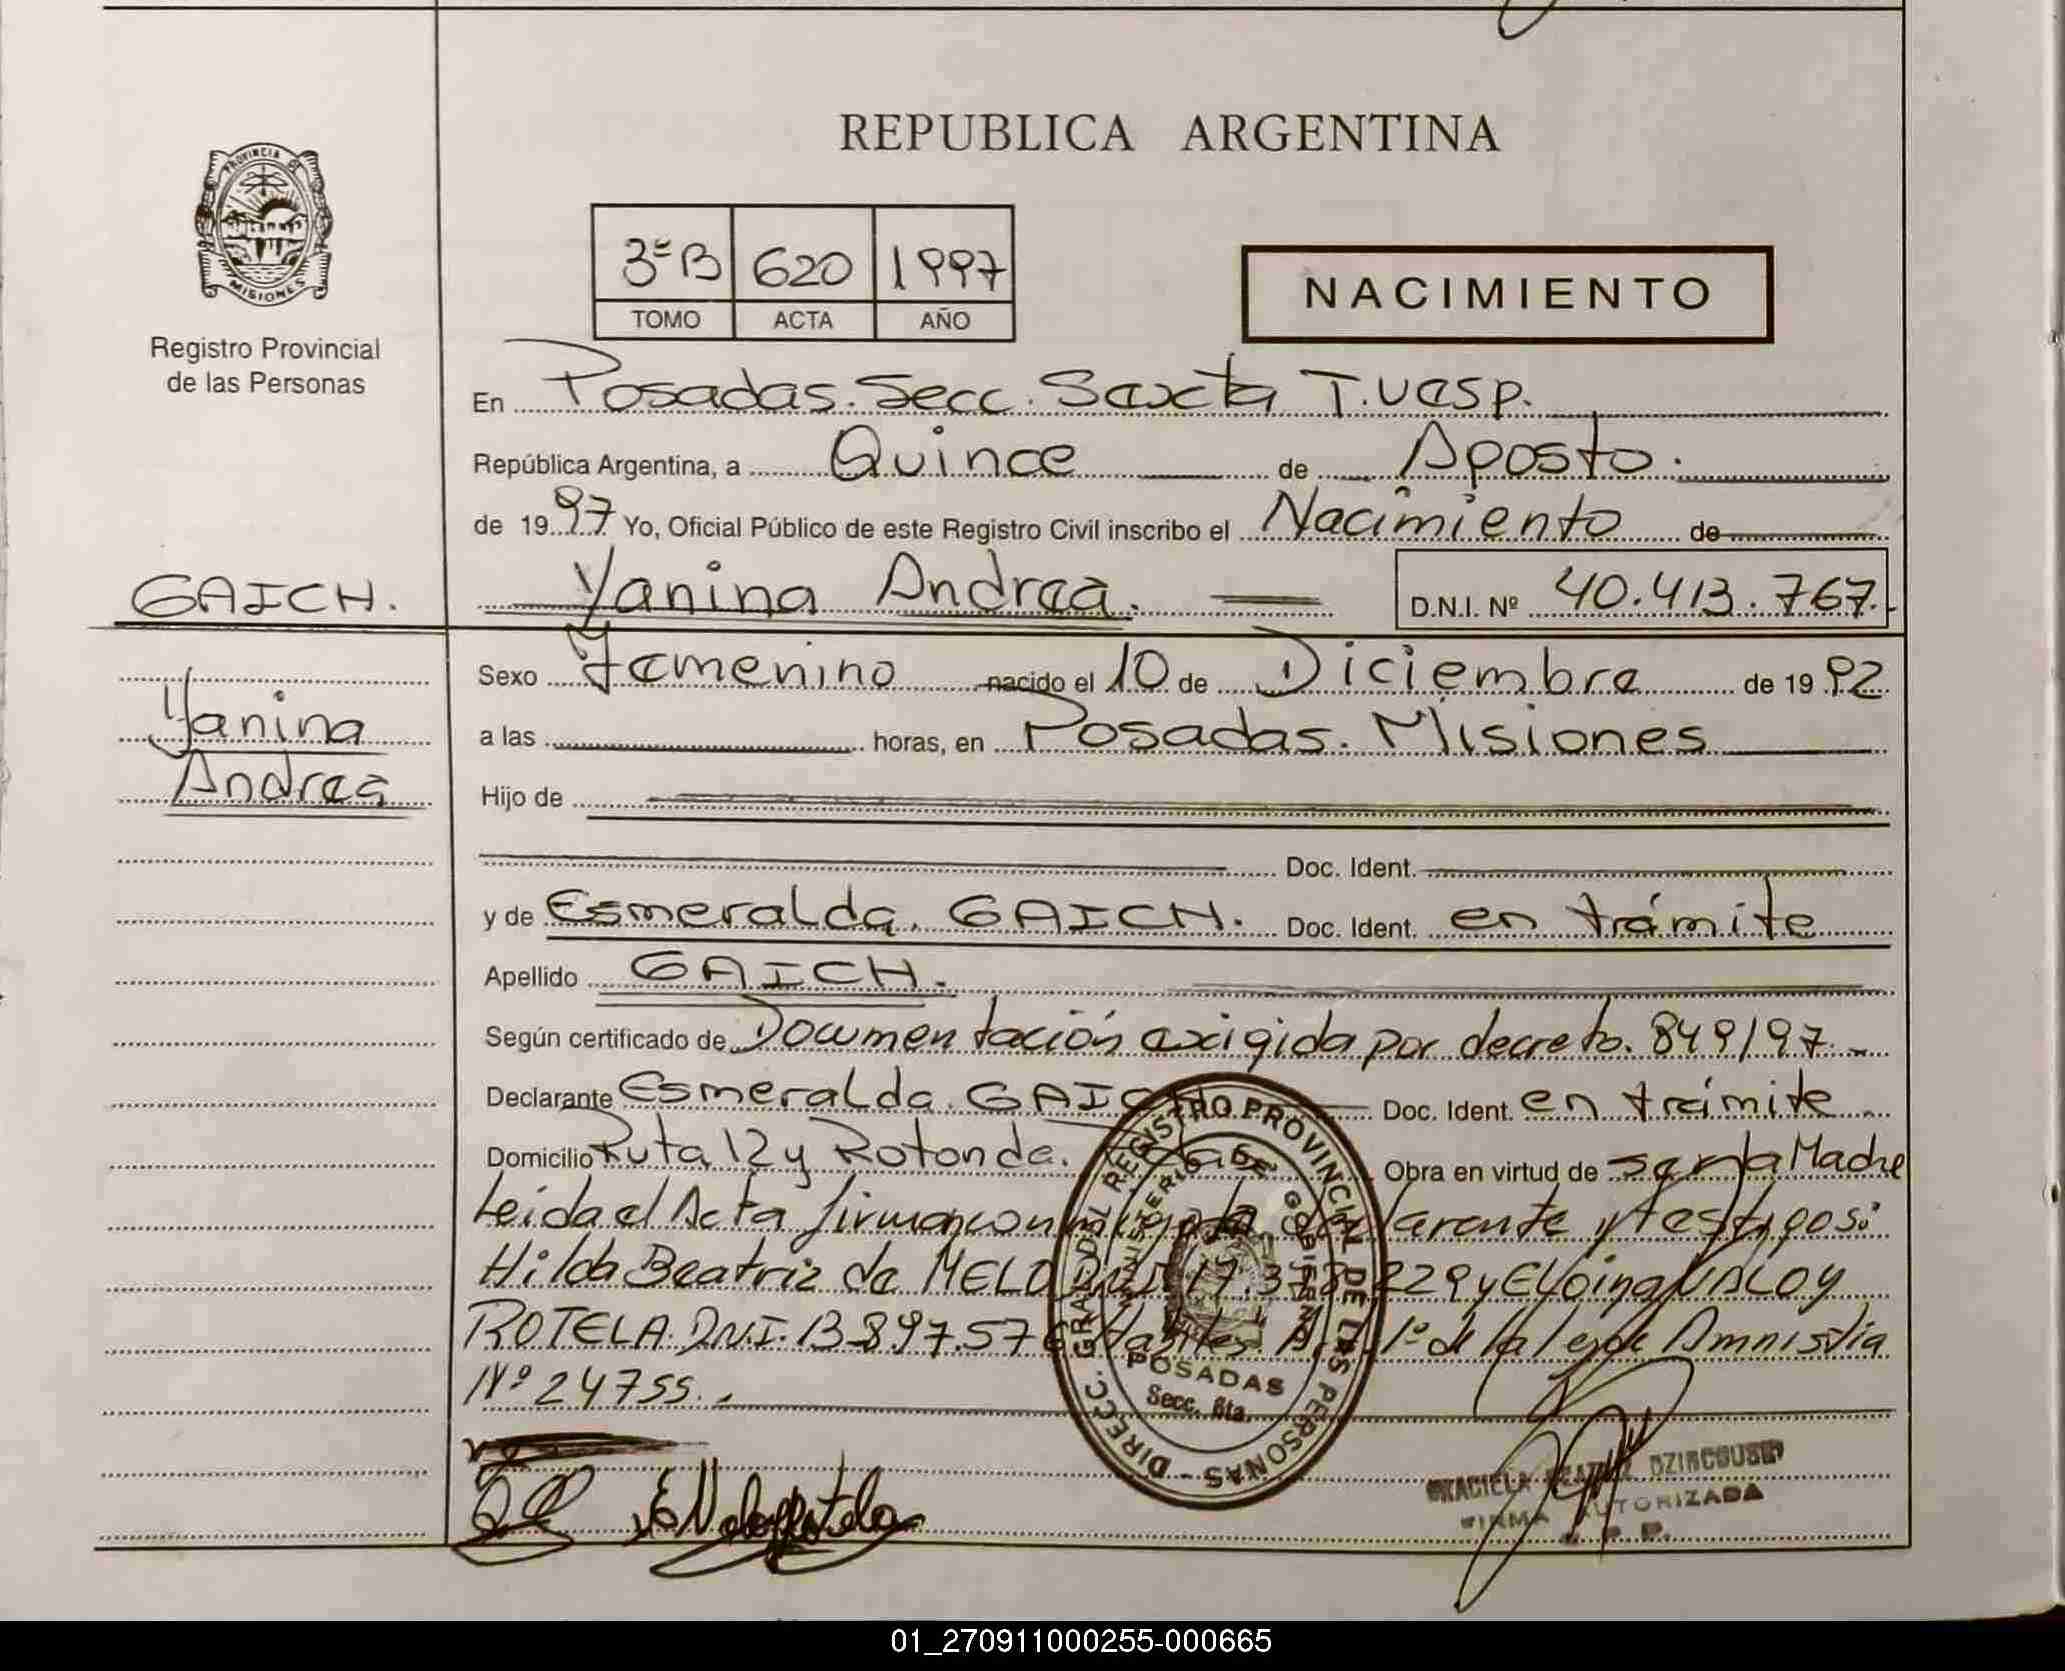 REPUBLICA ARGENTINA
PROVINCIA DE
MISIONES
Registro Provincial
de las Personas
3ºB 620 1997
TOMO ACTA AÑO
NACIMIENTO
En Posadas. Secc. Sexta T.VESP.
República Argentina, a Quince de Agosto.
de 1997 Yo, Oficial Público de este Registro Civil inscribo el Nacimiento de
GAICH.
Yanina Andrea.
D.N.I. Nº 40.413.767.
Yanina
Andrea
Sexo Femenino nacido el 10 de Diciembre de 1992
a las horas, en Posadas. Misiones
Hijo de
Doc. Ident.
y de Esmeralda. GAICH. Doc. Ident. en trámite
Apellido GAICH.
Según certificado de Documentación exigida por decreto. 849/97.
Declarante Esmeralda. GAICH Doc. Ident. en trámite
Domicilio Ruta 12 y Rotonda. Obra en virtud de ser la Madre
Leida el Acta firman conmigo la declarante y testigos:
Hilda Beatriz de MELO D.N.I. 17.378.229 y
ROTELA. D.N.I. 13.897.576 1º de la ley de Amnistia
Nº 24755.
DIRECC. GRAL. DEL REGISTRO PROVINCIAL DE LAS PERSONAS
MINISTERIO DE GOBIERNO
POSADAS
Secc. 6ta.
GRACIELA BEATRIZ
FIRMA AUTORIZADA
01_270911000255-000665